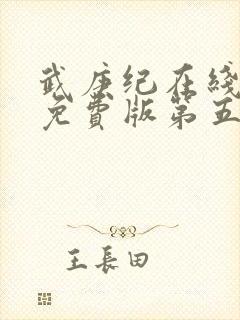 武庚纪在线
免費版第五
王長田